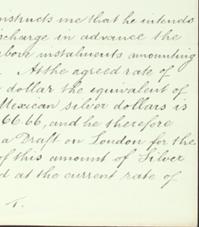 nstructs me that he intends
charge in advance the
above instalments amounting
. At the agreed rate of
dollar the equivalent of
Mexican silver dollars is
66.66, and he therefore
a Draft on London for the
of this amount of Silver
d at the current rate of